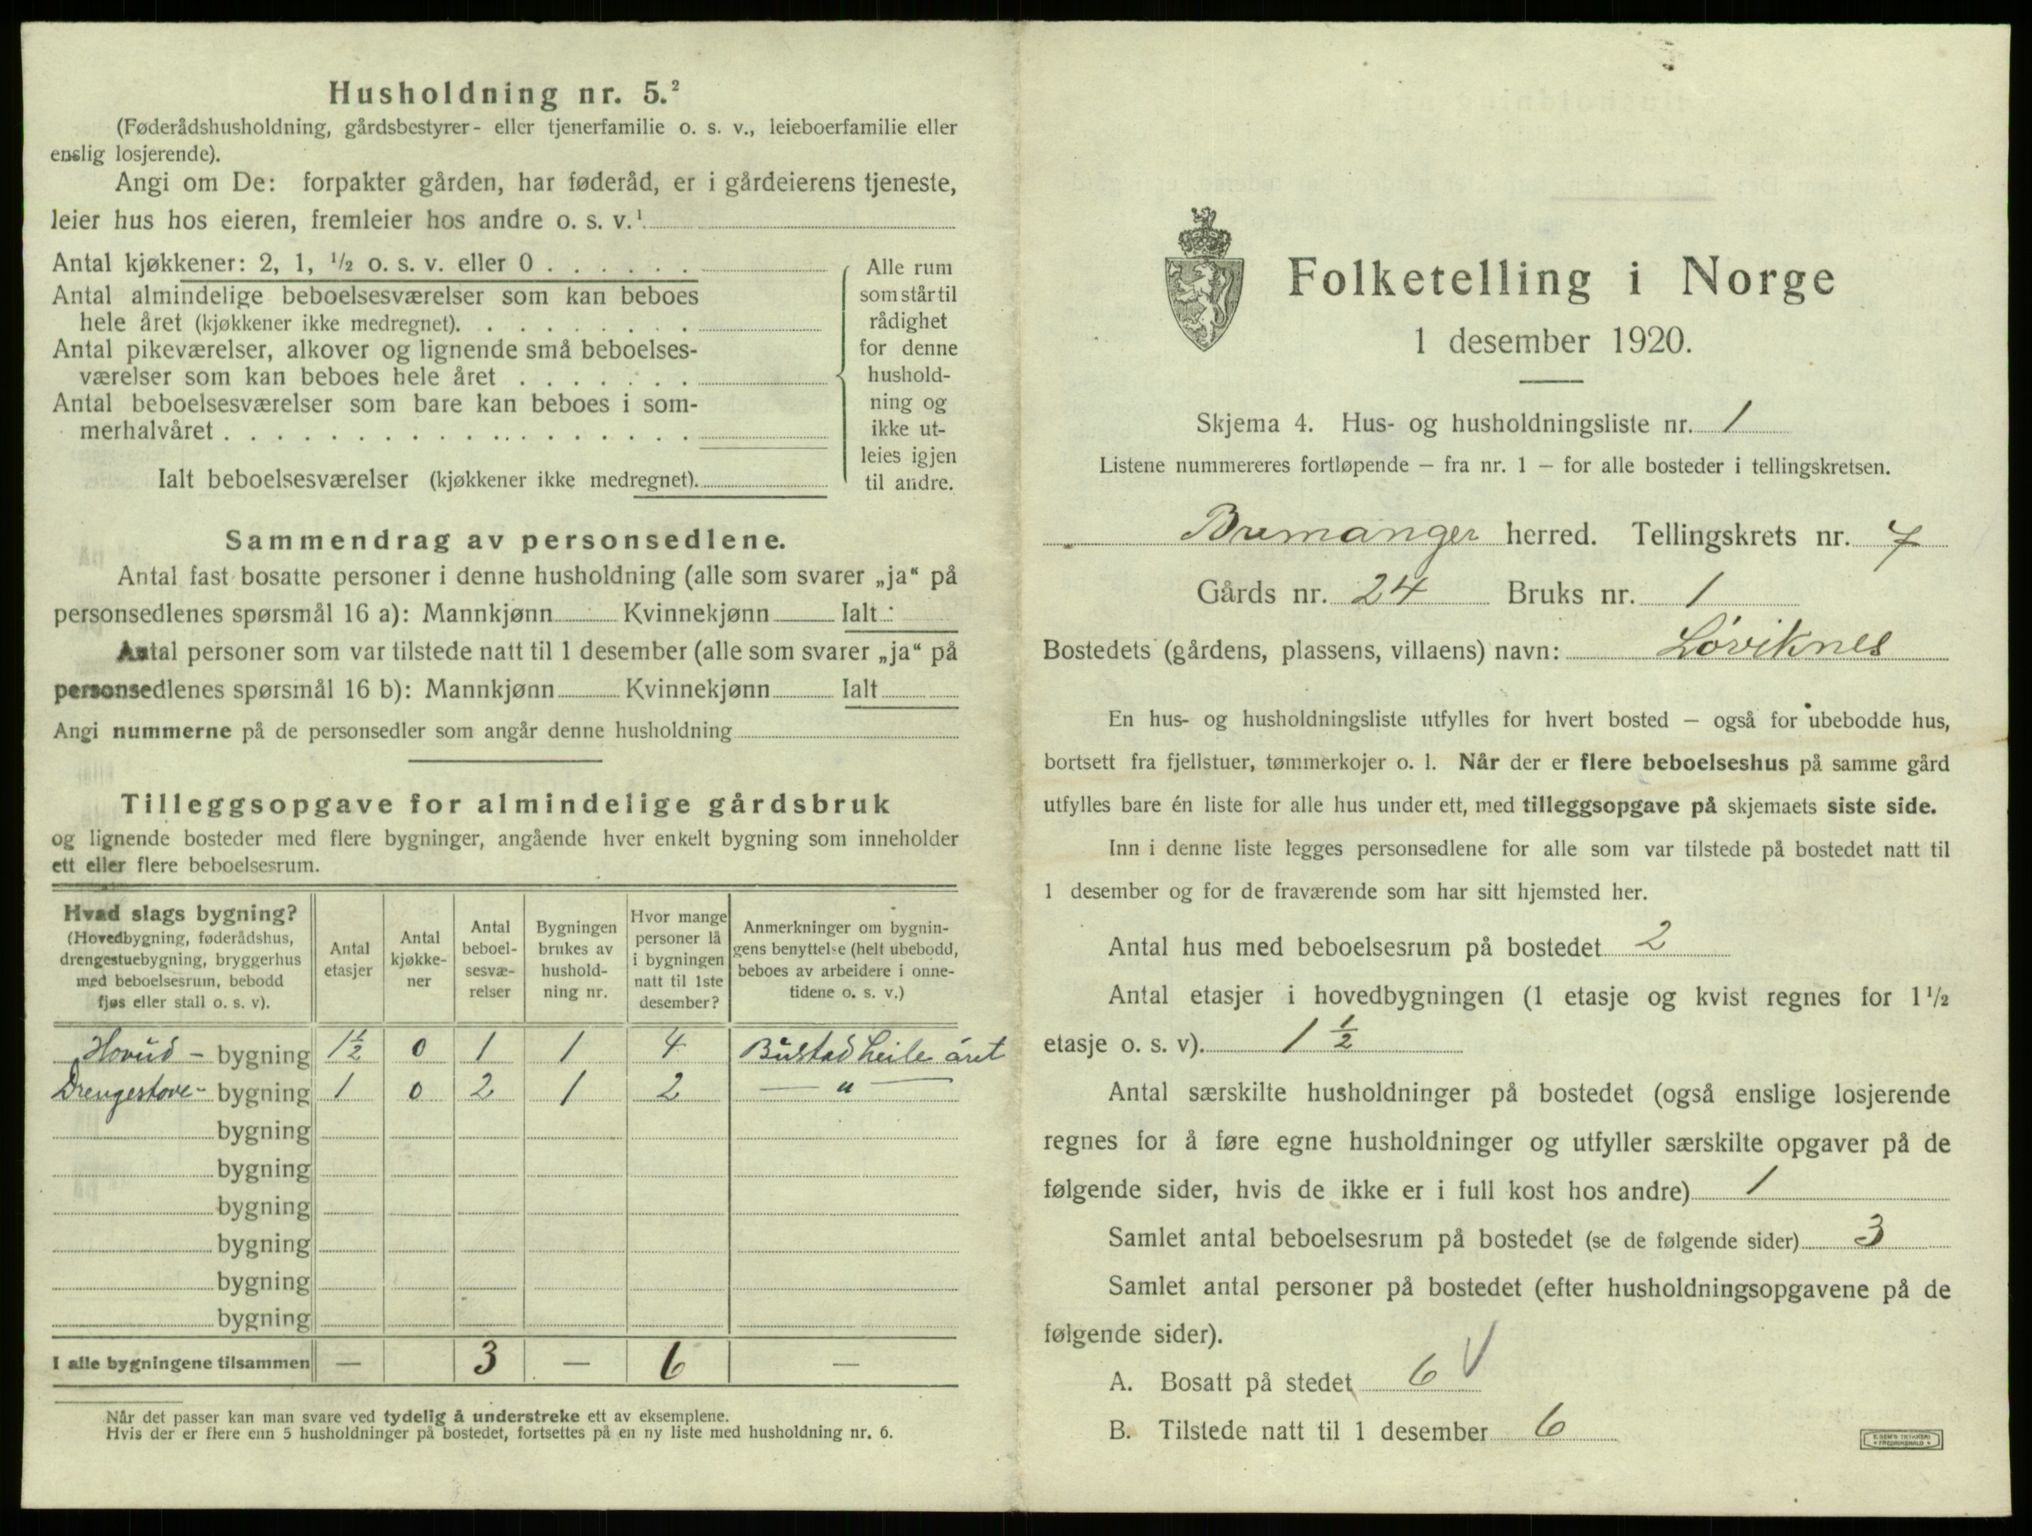 Husholdning nr. 5.²
(Føderådshusholdning, gårdsbestyrer- eller tjenerfamilie o. s. v., leieboerfamilie eller
enslig losjerende).
Angi om De: forpakter gården, har føderåd, er i gårdeierens tjeneste,
leier hus hos eieren, fremleier hos andre o. s. v.¹
Antal kjøkkener: 2, 1, ½ o. s. v. eller 0
Antal almindelige beboelsesværelser som kan beboes
hele året (kjøkkener ikke medregnet).
Antal pikeværelser, alkover og lignende små beboelses-
værelser som kan beboes hele året
Antal beboelsesværelser som bare kan beboes i som-
merhalvåret
Ialt beboelsesværelser (kjøkkener ikke medregnet).
Alle rum
som står til
rådighet
for denne
hushold-
ning og
ikke ut-
leies igjen
til andre.
Sammendrag av personsedlene.
Antal fast bosatte personer i denne husholdning (alle som svarer „ja“ på
personsedlenes spørsmål 16 a): Mannkjønn Kvinnekjønn Ialt
Antal personer som var tilstede natt til 1 desember (alle som svarer „ja“ på
personsedlenes spørsmål 16 b): Mannkjønn Kvinnekjønn Ialt
Angi nummerne på de personsedler som angår denne husholdning
Tilleggsopgave for almindelige gårdsbruk
og lignende bosteder med flere bygninger, angående hver enkelt bygning som inneholder
ett eller flere beboelsesrum.
Hvad slags bygning?
(Hovedbygning, føderådshus,
drengestuebygning, bryggerhus
med beboelsesrum, bebodd
fjøs eller stall o. s. v).
Antal
etasjer
Antal
kjøkke-
ner
Antal
beboel-
sesvæ-
relser
Bygningen
brukes av
hushold-
ning nr.
Hvor mange
personer lå
i bygningen
natt til 1ste
desember?
Anmerkninger om bygnin-
gens benyttelse (helt ubebodd,
beboes av arbeidere i onne-
tidene o. s. v.)
Hovud - bygning 1½ 0 1 1 4 Bustad heile året
Drengestove - bygning 1 0 2 1 2 — " —
bygning
bygning
bygning
bygning
bygning
bygning
I alle bygningene tilsammen — 3 — 6 —
Når det passer kan man svare ved tydelig å understreke ett av eksemplene.
Hvis der er flere enn 5 husholdninger på bostedet, fortsettes på en ny liste med husholdning nr. 6.
Folketelling i Norge
1 desember 1920.
Skjema 4. Hus- og husholdningsliste nr. 1
Listene nummereres fortløpende – fra nr. 1 – for alle bosteder i tellingskretsen.
Bremanger herred. Tellingskrets nr. 7
Gårds nr. 24 Bruks nr. 1
Bostedets (gårdens, plassens, villaens) navn: Løviknes
En hus- og husholdningsliste utfylles for hvert bosted – også for ubebodde hus,
bortsett fra fjellstuer, tømmerkojer o. l. Når der er flere beboelseshus på samme gård
utfylles bare én liste for alle hus under ett, med tilleggsopgave på skjemaets siste side.
Inn i denne liste legges personsedlene for alle som var tilstede på bostedet natt til
1 desember og for de fraværende som har sitt hjemsted her.
Antal hus med beboelsesrum på bostedet 2
Antal etasjer i hovedbygningen (1 etasje og kvist regnes for 1½
etasje o. s. v). 1½
Antal særskilte husholdninger på bostedet (også enslige losjerende
regnes for å føre egne husholdninger og utfyller særskilte opgaver på de
følgende sider, hvis de ikke er i full kost hos andre) 1
Samlet antal beboelsesrum på bostedet (se de følgende sider) 3
Samlet antal personer på bostedet (efter husholdningsopgavene på de
følgende sider).
A. Bosatt på stedet 6 V
B. Tilstede natt til 1 desember 6